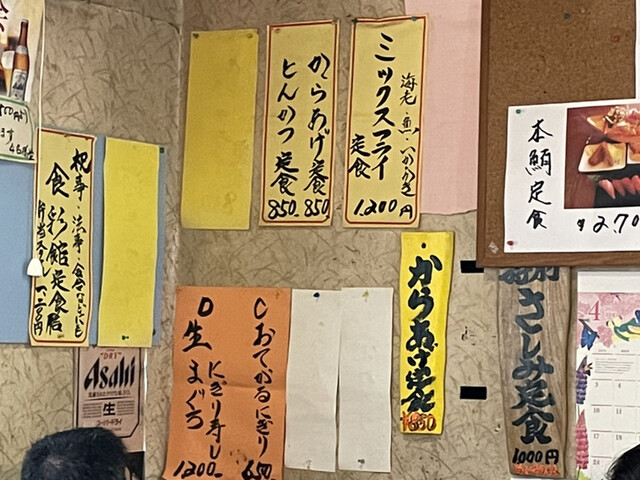 ミックスフライ
海老・魚・いか・かき
定食
1.200円
からあげ定食 850
とんかつ定食 850.
本鮪定食
¥2.70
祝事・法事・会合などにも
食彩館定食膳
Asahi
"DRY"
生
スーパードライ
C おてがるにぎり
650
D 生まぐろ
にぎり寿し
1200-
からあげ定食
¥850
さしみ定食
1000円
4